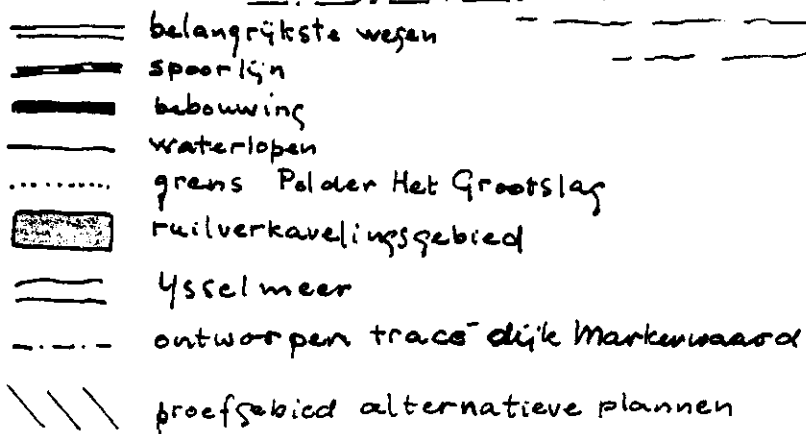 belangrijkste wegen
spoorlijn
bebouwing
waterlopen
grens Polder Het Grootslag
ruilverkavelingsgebied
Ysselmeer
ontworpen tracé dijk Markerwaard
proefgebied alternatieve plannen